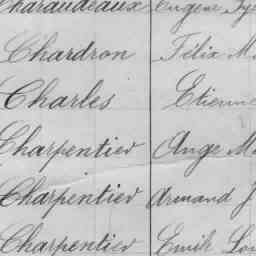 Charaudeaux Eugène
Chardron Félix
Charles Etienne
Charpentier Ange
Charpentier Armand J
Charpentier Emile